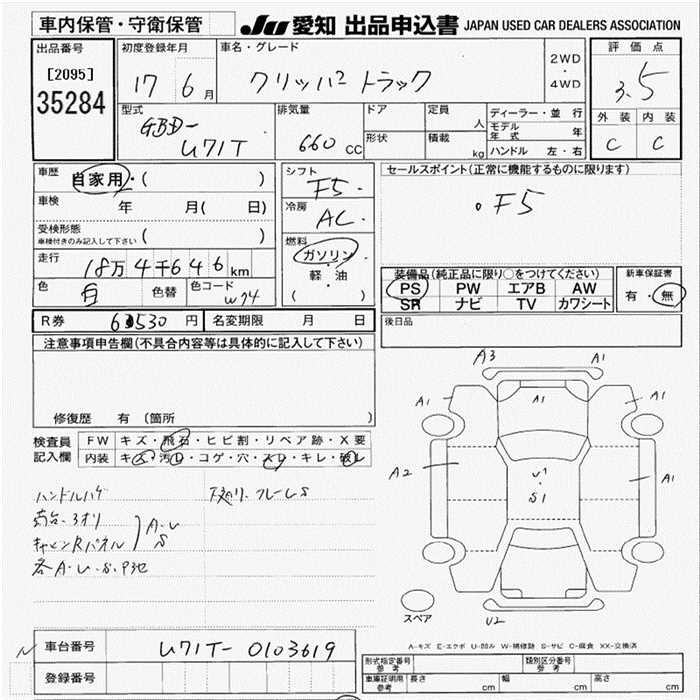 車内保管・守衛保管
JU 愛知 出品申込書 JAPAN USED CAR DEALERS ASSOCIATION
出品番号
[2095]
35284
初度登録年月
17 6月
車名・グレード
クリッパー トラック
2WD
・
4WD
評価点
3.5
外装 内装
C C
型式
GBD-
U71T
排気量
660 CC
ドア
形状
定員
人
積載
kg
ディーラー・並行
モデル年式 年
ハンドル 左・右
車歴 自家用・( )
車検 年 月( 日)
受検形態
車検付きのみ記入して下さい ( )
走行 18万4千646km
色 白 色替 色コード W74
シフト
F5.
冷房
AC.
燃料
ガソリン
軽・油
( )
セールスポイント(正常に機能するものに限ります)
・F5
装備品(純正品に限り○をつけてください)
PS PW エアB AW
SR ナビ TV カワシート
新車保証書
有・無
R券 円 名変期限 月 日
後日品
注意事項申告欄(不具合内容等は具体的に記入して下さい)
修復歴 有 (箇所
検査員記入欄
FW キズ・飛石・ヒビ割・リペア跡・X要
内装 キズ・汚れ・コゲ・穴・スレ・キレ・破れ
ハンドルハゲ
荷台・3オリ
A・U
キャビンRパネル
S
各A・U・S・P他
下廻り・フレームS
A3 A1
A1 A1 A1
A2 U1 A1
・
S1
スペア U2
A-キズ E-エクボ U-凹み W-補修跡 S-サビ C-腐食 XX-交換済
車台番号 U71T-0103619
登録番号
形式指定番号
参考
類別区分番号
参考
車庫証明用
参考
長さ cm 幅 cm 高さ cm